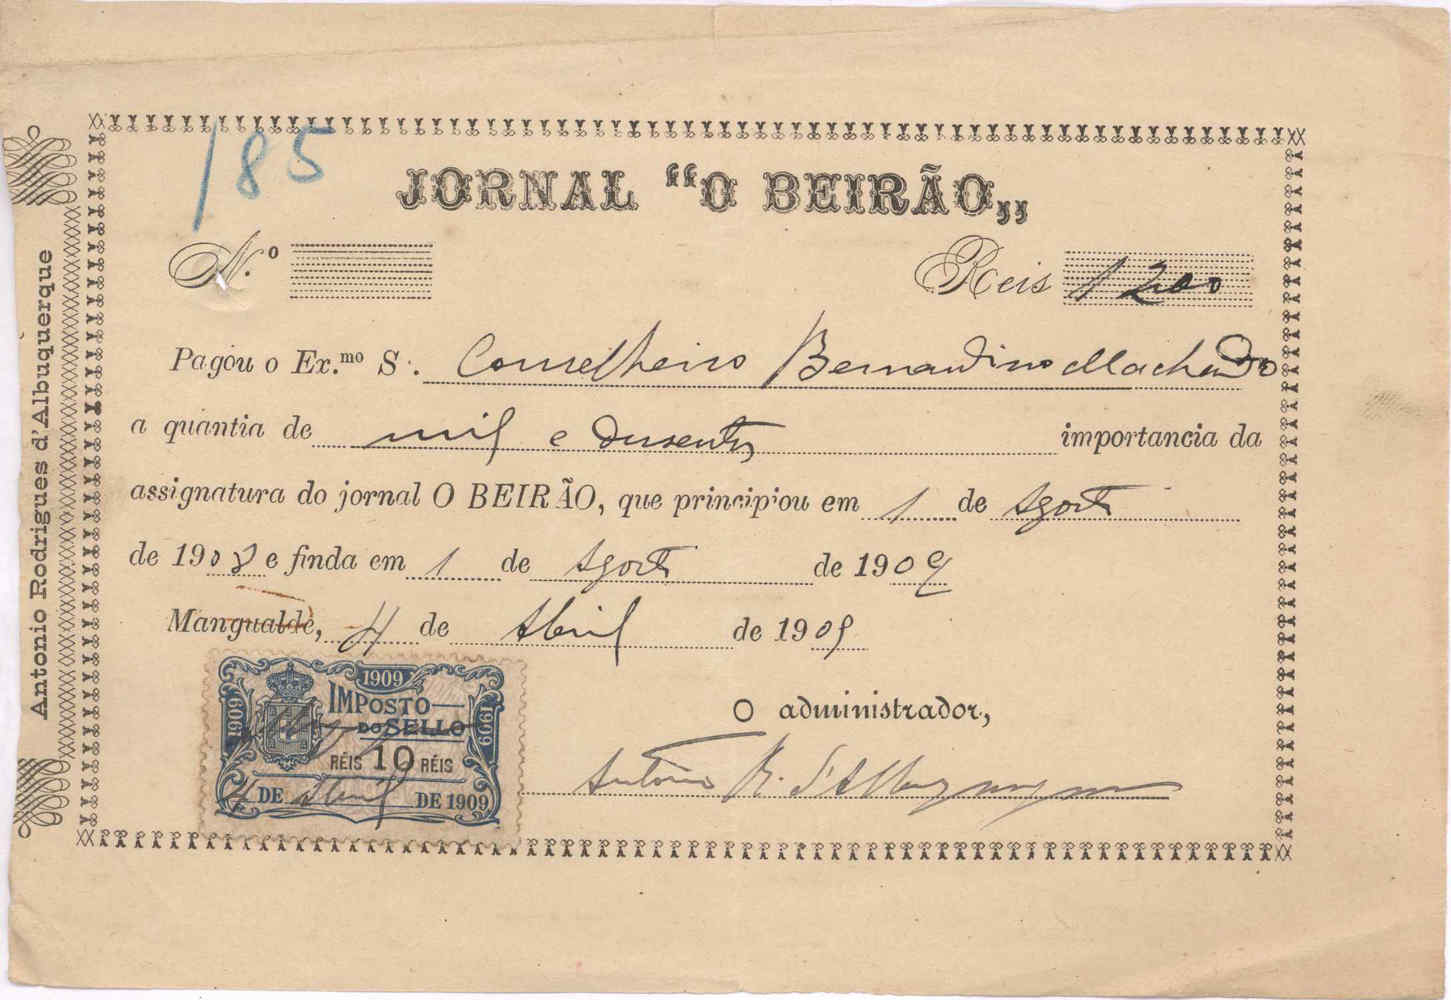 185
JORNAL “O BEIRÃO„
N.º Reis 1200
Pagou o Ex.mo S.: Conselheiro Bernardino Machado
a quantia de mil e dusentos importancia da
assignatura do jornal O BEIRÃO, que principiou em 1 de Agosto
de 1908 e finda em 1 de Agosto de 1909
Mangualde, 4 de Abril de 1909
O administrador,
Antonio R. d'Albuquerque
Antonio Rodrigues d'Albuquerque
1909
1909
1909
IMPOSTO
DO SELLO
RÉIS 10 RÉIS
4 DE Abril DE 1909